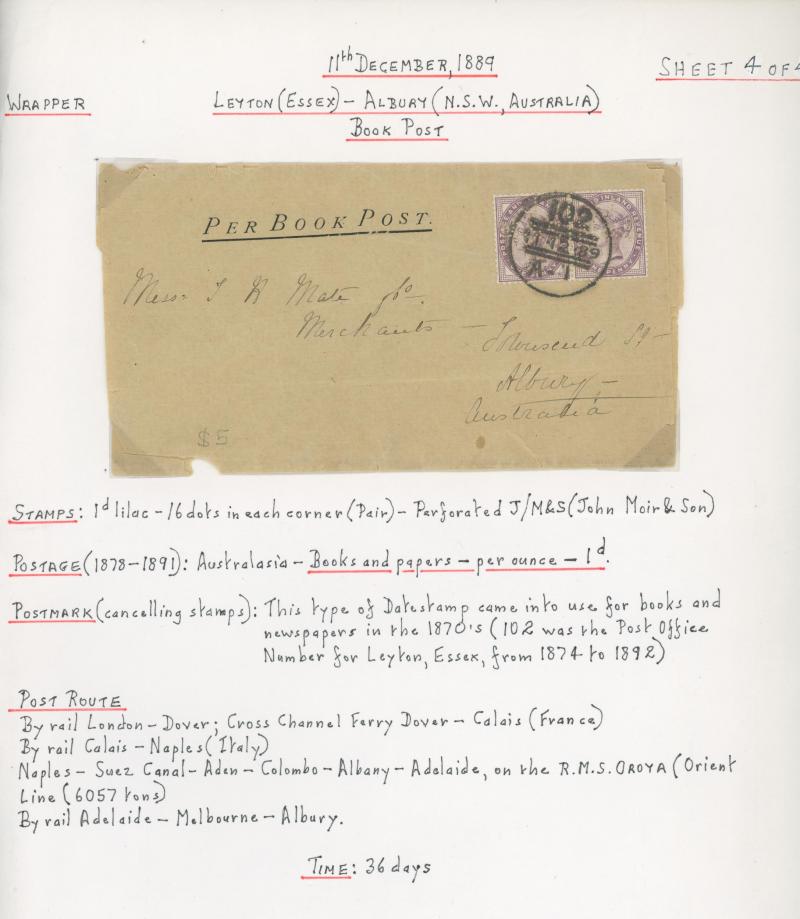 11th DECEMBER, 1889
SHEET 4 OF 4
WRAPPER
LEYTON (ESSEX) – ALBURY (N.S.W., AUSTRALIA)
BOOK POST
PER BOOK POST.
102
11 12 89
A–1
INLAND REVENUE
Mess: T H Mate &Co –
Merchants –
Townsend St –
Albury –
Australia
$5
STAMPS: 1d lilac – 16 dots in each corner (Pair) – Perforated J/M&S (John Moir & Son)
POSTAGE (1878–1891): Australasia – Books and papers – per ounce – 1d.
POSTMARK (cancelling stamps): This type of Datestamp came into use for books and
newspapers in the 1870's (102 was the Post Office
Number for Leyton, Essex, from 1874 to 1892)
POST ROUTE
By rail London – Dover; Cross Channel Ferry Dover – Calais (France)
By rail Calais – Naples (Italy)
Naples – Suez Canal – Aden – Colombo – Albany – Adelaide, on the R.M.S. OROYA (Orient
Line (6057 tons)
By rail Adelaide – Melbourne – Albury.
TIME: 36 days